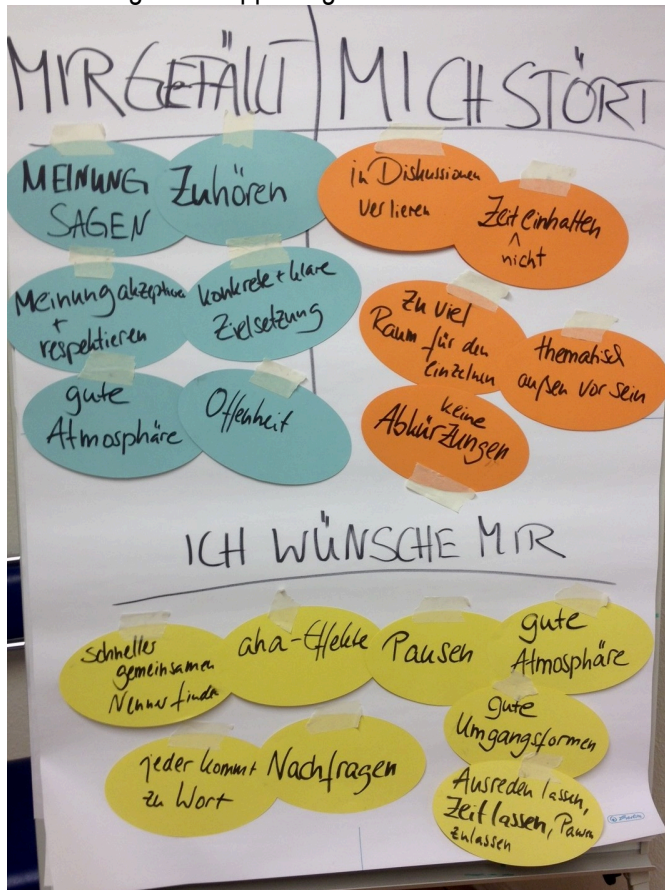 MIR GEFÄLLT
MICH STÖRT
MEINUNG
SAGEN
Zuhören
Meinung akzeptieren
+
respektieren
konkrete + klare
Zielsetzung
gute
Atmosphäre
Offenheit
in Diskussionen
verlieren
Zeit einhalten
^
nicht
Zu viel
Raum für den
einzelnen
thematisch
außen vor sein
keine
Abkürzungen
ICH WÜNSCHE MIR
schneller
gemeinsamen
Nenner finden
aha-Effekte
Pausen
gute
Atmosphäre
gute
Umgangsformen
jeder kommt
zu Wort
Nachfragen
Ausreden lassen,
Zeit lassen, Pausen
zulassen